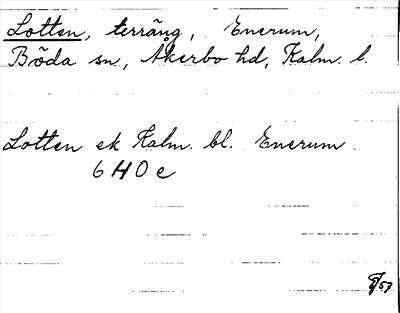 Lotten, terräng, Enerum,
Böda sn, Åkerbo hd, Kalm. l.
Lotten ek Kalm. bl. Enerum
6 H 0 e
/57